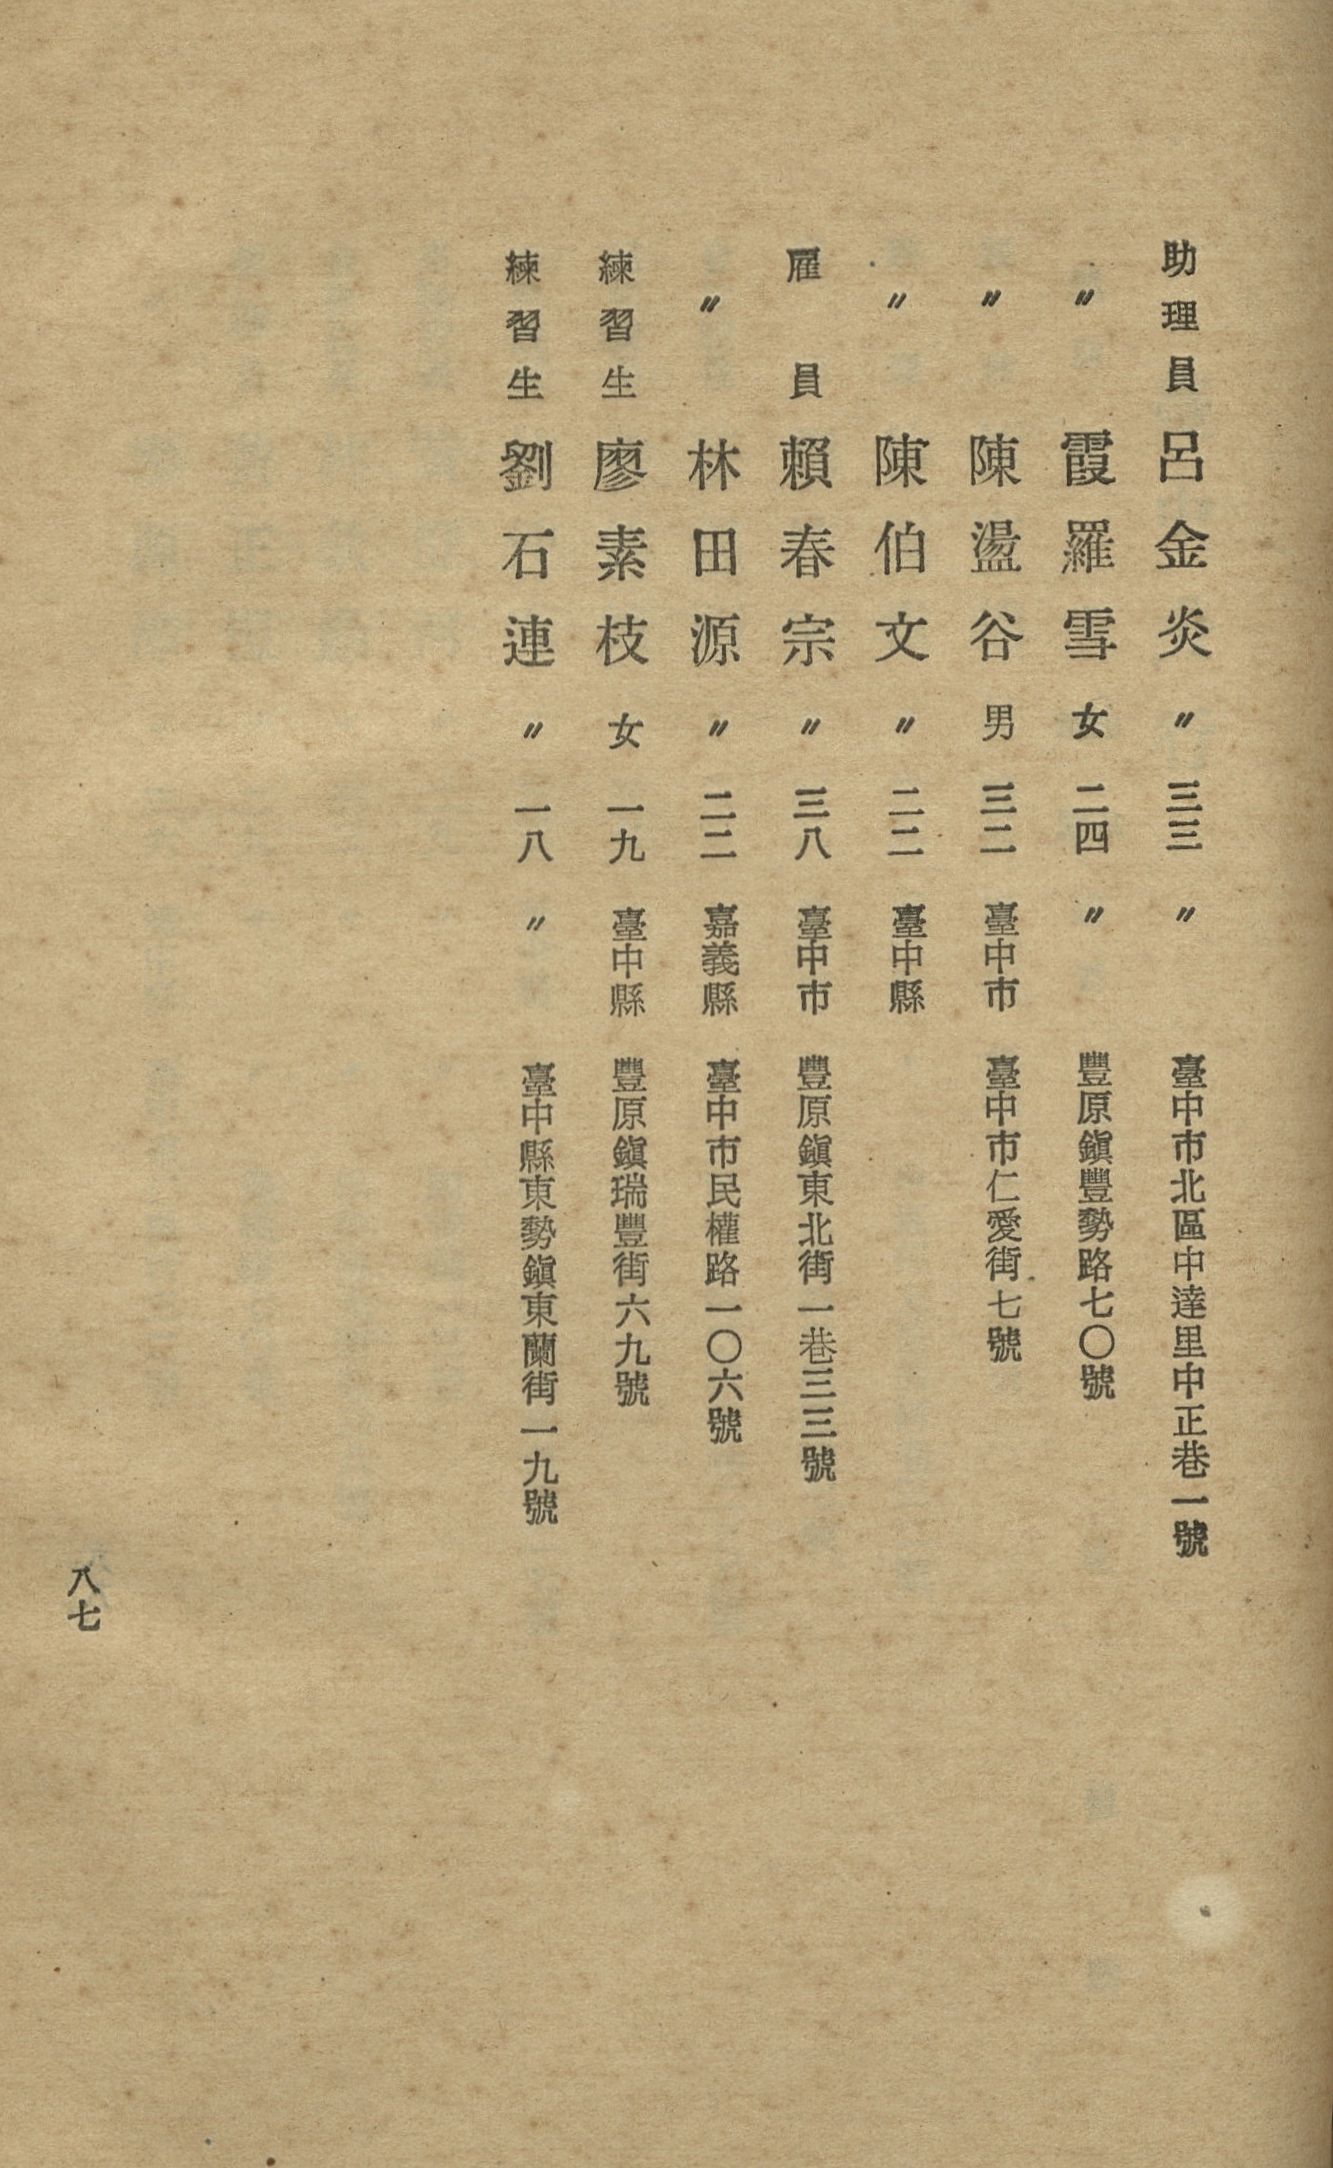 助理員 呂金炎 〃 三三 〃 臺中市北區中達里中正巷一號
〃 霞羅雪 女 二四 〃 豐原鎭豐勢路七〇號
〃 陳盪谷 男 三二 臺中市 臺中市仁愛街七號
〃 陳伯文 〃 二二 臺中縣
雇員 賴春宗 〃 三八 臺中市 豐原鎭東北街一巷三三號
〃 林田源 〃 二二 嘉義縣 臺中市民權路一〇六號
練習生 廖素枝 女 一九 臺中縣 豐原鎭瑞豐街六九號
練習生 劉石連 〃 一八 〃 臺中縣東勢鎭東蘭街一九號
八七